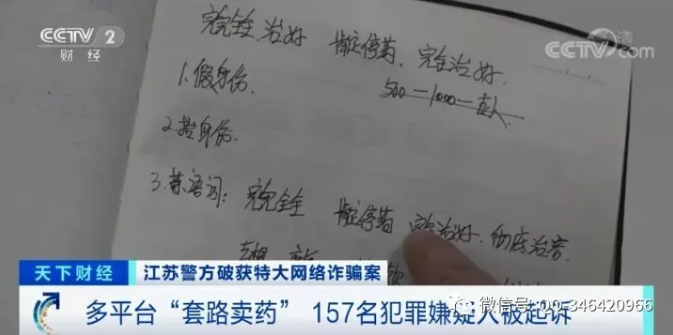 CCTV 2
财经
CCTV.com
完全、治好 肯定停药、完全治好.
1.假身份.
500—1000—
2.
3.禁语词: 完全 肯定停药 完全治好、彻底治
天下财经 江苏警方破获特大网络诈骗案
多平台“套路卖药” 157名犯罪嫌疑人被起诉
微信号: qq-346420966